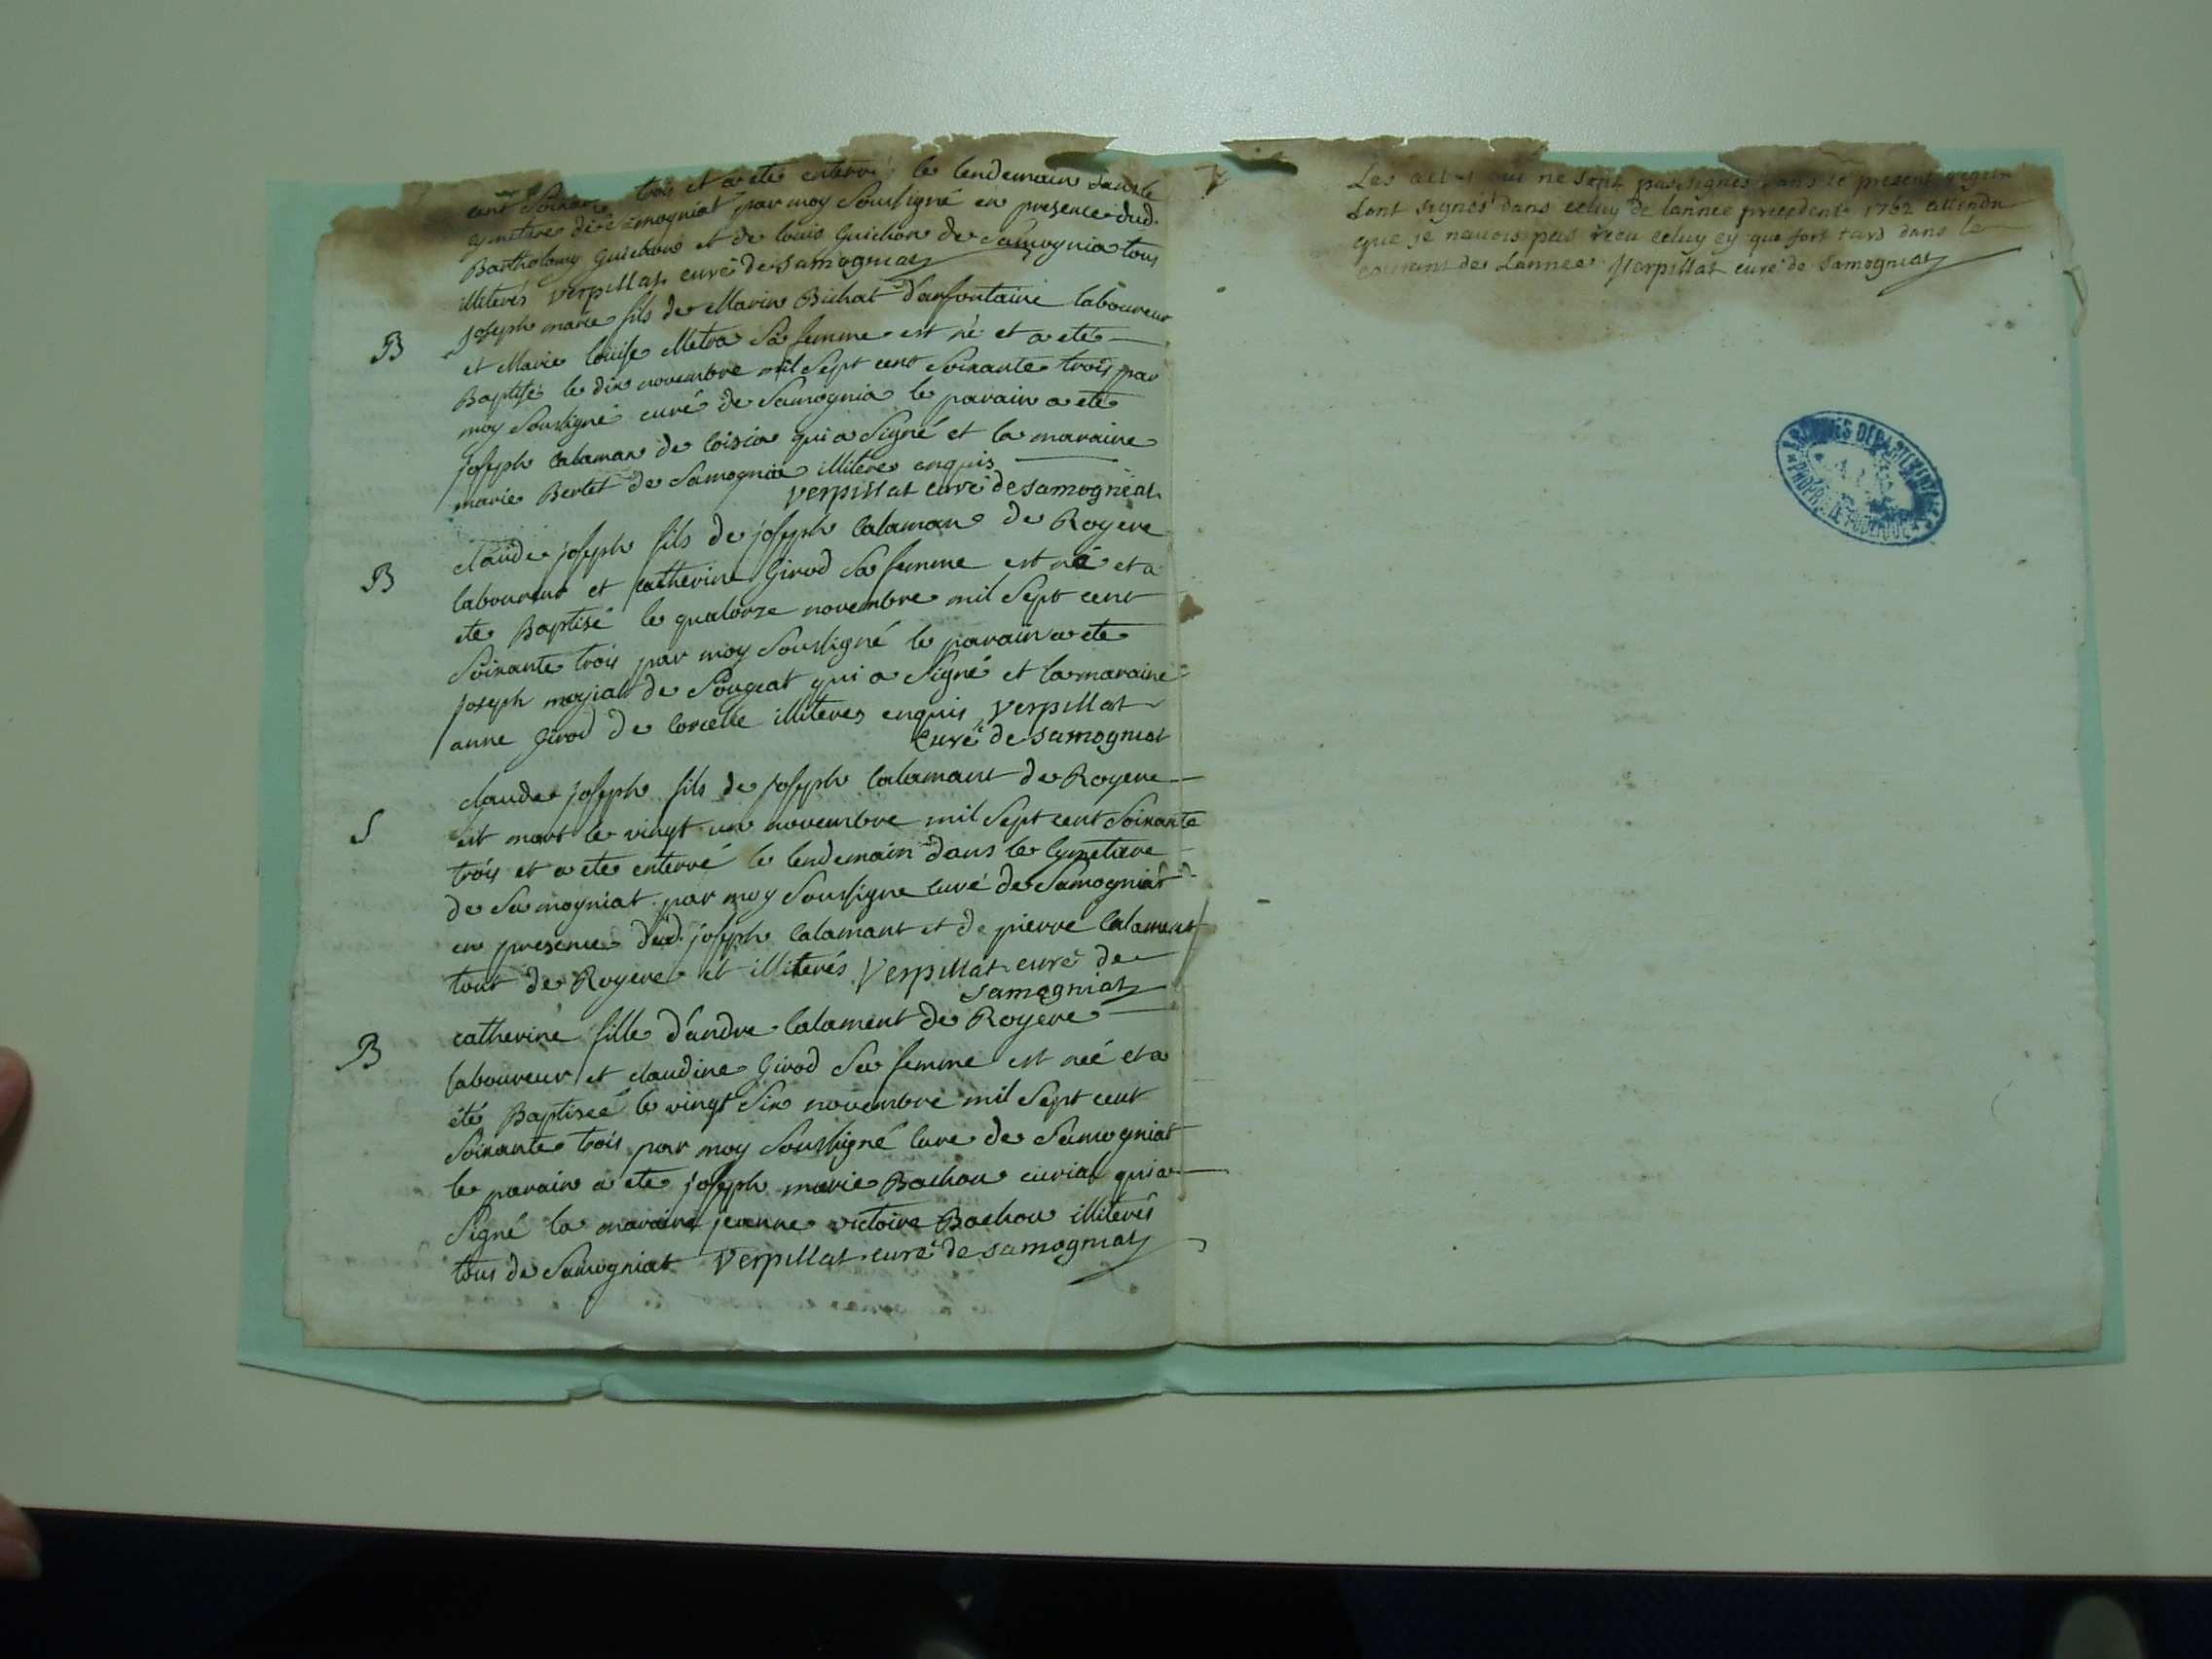 cent Soixante trois et a ete enterré le lendemain dans le
cymetiere de Samogniat par moy Soussigné en presence dud.
Bartholomy Guichon et de louis Guichon de Samognia tous
illiterés Verpillat curé de Samogniat
B
joseph marie fils de Marin Bichat d'anfontaine laboureur
et Marie louise Metra Sa femme est né et a eté
Baptisé le dix novembre mil Sept cent Soixante trois par
moy Soussigné curé de Samognia le parain a eté
joseph Calaman de loisia qui a Signé et la maraine
marie Bertet de Samognia illitere enquis
Verpillat curé de Samogniat
B
claude joseph fils de joseph Calaman de Royere
laboureur et catherine Girod Sa femme est né et a
ete Baptisé le quatorze novembre mil Sept cent
Soixante trois par moy Soussigné le parain a ete
joseph de Songeat qui a Signé et la maraine
anne Girod de Corcelle illiteres enquis Verpillat
Curé de Samogniat
S
claude joseph fils de joseph Calamant de Royere
est mort le vingt un novembre mil Sept cent Soixante
trois et a ete enterré le lendemain dans le Cymetiere
de Samogniat par moy Soussigne curé de Samogniat
en presence dud. joseph Calamant et de pierre Calament
tout de Royere et illiterés Verpillat curé de
Samogniat
B
catherine fille d'andre Calament de Royere
laboureur et claudine Girod Sa femme est neé et a
été Baptiseé le vingt Six novembre mil Sept cent
Soixante trois par moy Soussigné Cure de Samogniat
le parain a ete joseph marie Bachou curial qui a
Signé la maraine jeanne victoire Bachou illiterés
tous de Samogniat Verpillat curé de Samogniat
Les actes qui ne Sont pas signés dans le present regitre
Sont signés dans celuy de lannee precedente 1762 attendu
que je navois pas recu celuy cy que fort tard dans le
courant de Lannee Verpillat curé de Samogniat
ARCHIVES DEPARTEMENTALES
PROPRIETE PUBLIQUE